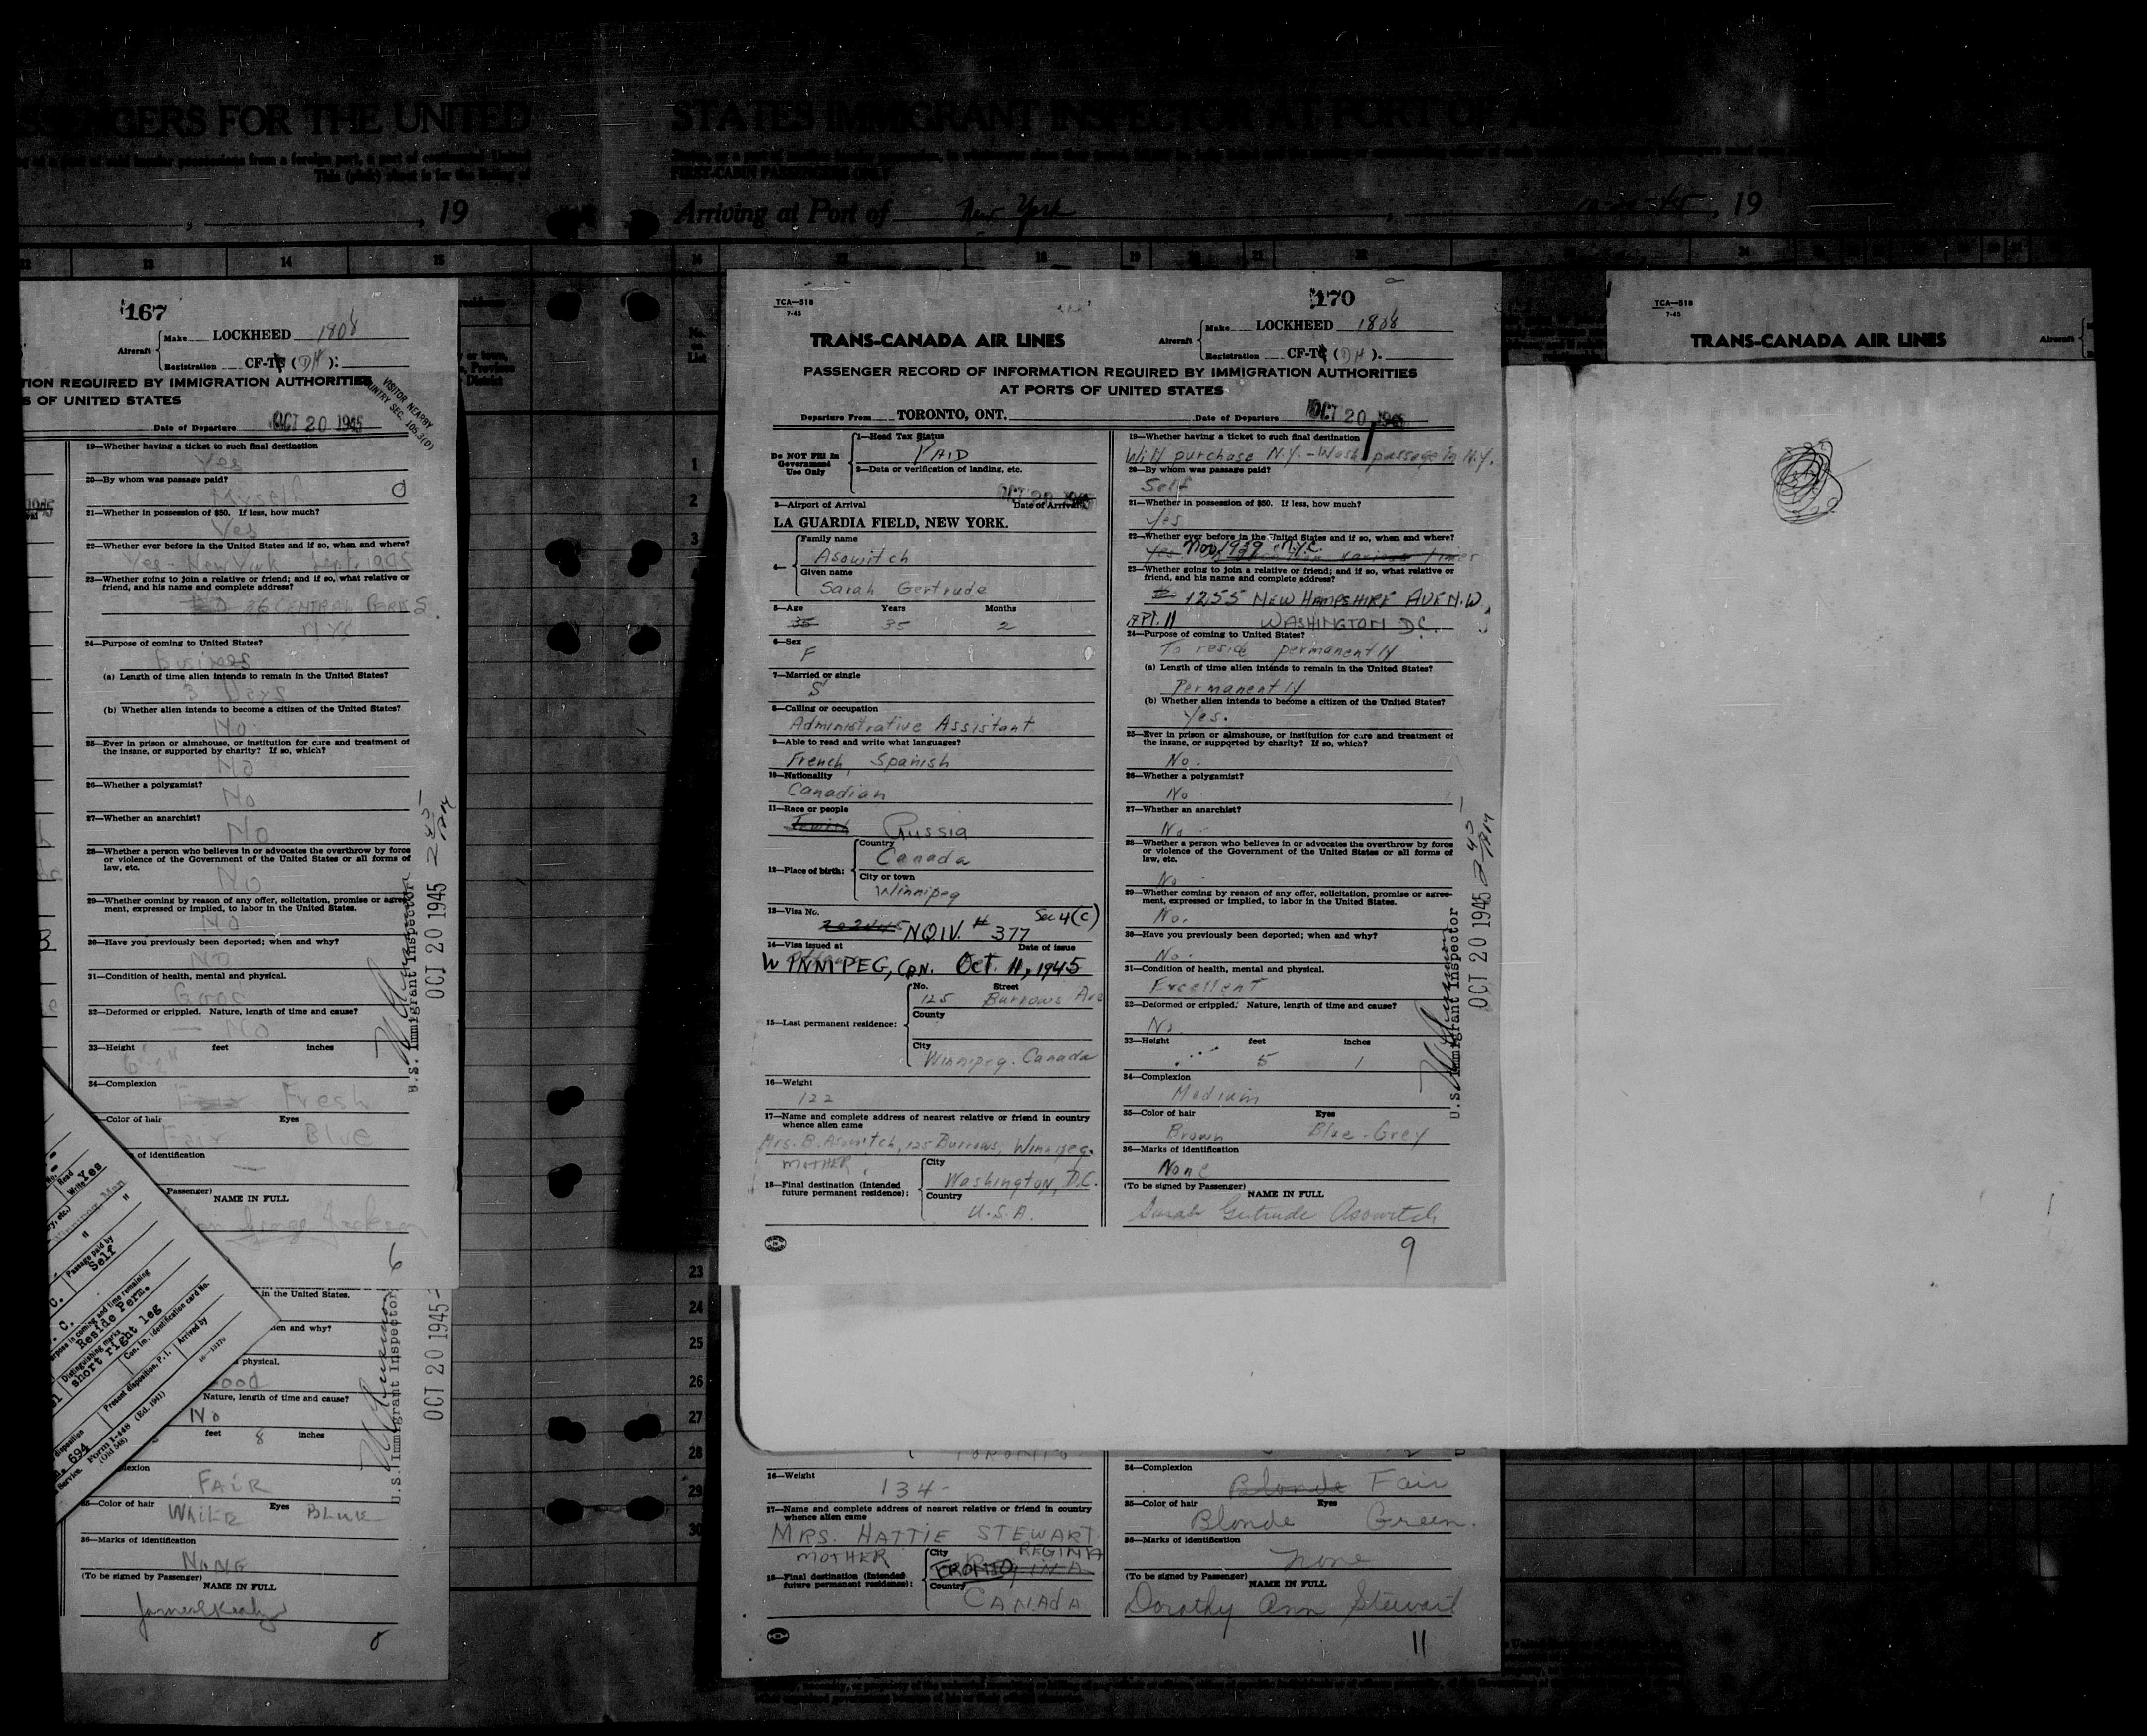 SSENGERS FOR THE UNITED
This (pink) sheet is for the listing of
, 19
13 14 15
167
Make LOCKHEED 1808
Aircraft
Registration CF-T (DH).
TION REQUIRED BY IMMIGRATION AUTHORITIES
S OF UNITED STATES
VISITOR NEARBY
COUNTRY SEC. 105.3(D)
Date of Departure OCT 20 1945
19—Whether having a ticket to such final destination
Yes
20—By whom was passage paid?
Myself
21—Whether in possession of $50. If less, how much?
Yes
22—Whether ever before in the United States and if so, when and where?
Yes - New York Sept. 1945
23—Whether going to join a relative or friend; and if so, what relative or
friend, and his name and complete address?
36 CENTRAL PARK S.
NYC
24—Purpose of coming to United States?
Business
(a) Length of time alien intends to remain in the United States?
3 Days
(b) Whether alien intends to become a citizen of the United States?
No
25—Ever in prison or almshouse, or institution for care and treatment of
the insane, or supported by charity? If so, which?
No
26—Whether a polygamist?
No
27—Whether an anarchist?
No
28—Whether a person who believes in or advocates the overthrow by force
or violence of the Government of the United States or all forms of
law, etc.
No
29—Whether coming by reason of any offer, solicitation, promise or agree-
ment, expressed or implied, to labor in the United States.
No
30—Have you previously been deported; when and why?
No
31—Condition of health, mental and physical.
Good
32—Deformed or crippled. Nature, length of time and cause?
No
33—Height feet inches
6' 2"
34—Complexion
Fair Fresh
Color of hair Eyes
Fair Blue
of identification
Passenger)
NAME IN FULL
George Jackson
6
U.S. Immigrant Inspector
OCT 20 1945
Read
Write Yes
Passage paid by
Self
Purpose in coming and time remaining
Reside Perm.
Distinguishing marks
short right leg
Con. im. identification card No.
Present disposition, P. I.
Arrived by
694
Form I-448 (Ed. 1941)
in the United States.
hen and why?
physical.
Good
Nature, length of time and cause?
No
feet 8 inches
FAIR
35—Color of hair Eyes
WHITE BLUE
36—Marks of identification
NONE
(To be signed by Passenger)
NAME IN FULL
8
U.S. Immigrant Inspector
OCT 20 1945
STATES IMMIGRANT INSPECTOR AT PORT OF
FIRST-CABIN PASSENGERS ONLY
Arriving at Port of New York , 19
16 17 18 19 20 21 22
No.
on
List
1
2
3
23
24
25
26
27
28
29
30
TCA—518
7-45
170
TRANS-CANADA AIR LINES
Make LOCKHEED 1808
Aircraft
Registration CF-T (DH).
PASSENGER RECORD OF INFORMATION REQUIRED BY IMMIGRATION AUTHORITIES
AT PORTS OF UNITED STATES
Departure From TORONTO, ONT. Date of Departure OCT 20 1945
Do NOT Fill in
Government
Use Only
1—Head Tax Status
PAID
2—Data or verification of landing, etc.
OCT 20 1945
3—Airport of Arrival Date of Arrival
LA GUARDIA FIELD, NEW YORK.
4—
Family name
Asovitch
Given name
Sarah Gertrude
5—Age Years Months
35 35 2
6—Sex
F
7—Married or single
S
8—Calling or occupation
Administrative Assistant
9—Able to read and write what languages?
French, Spanish
10—Nationality
Canadian
11—Race or people
Jewish Russia
12—Place of birth:
Country
Canada
City or town
Winnipeg
13—Visa No.
NQIV. # 377 Sec 4(c)
14—Visa issued at Date of issue
WINNIPEG, CAN. Oct. 11, 1945
15—Last permanent residence:
No. Street
125 Burrows Ave
County
City
Winnipeg. Canada
16—Weight
122
17—Name and complete address of nearest relative or friend in country
whence alien came
Mrs. B. Asovitch, 125 Burrows, Winnipeg.
MOTHER
18—Final destination (Intended
future permanent residence):
City
Washington, D.C.
Country
U.S.A.
19—Whether having a ticket to such final destination
Will purchase N.Y. - Wash passage in N.Y.
20—By whom was passage paid?
Self
21—Whether in possession of $50. If less, how much?
Yes
22—Whether ever before in the United States and if so, when and where?
Yes Nov. 1939 N.Y.C. various times
23—Whether going to join a relative or friend; and if so, what relative or
friend, and his name and complete address?
1255 NEW HAMPSHIRE AVE N.W.
APT. 11 WASHINGTON D.C.
24—Purpose of coming to United States?
To reside permanently
(a) Length of time alien intends to remain in the United States?
Permanently
(b) Whether alien intends to become a citizen of the United States?
Yes.
25—Ever in prison or almshouse, or institution for care and treatment of
the insane, or supported by charity? If so, which?
No.
26—Whether a polygamist?
No
27—Whether an anarchist?
No
28—Whether a person who believes in or advocates the overthrow by force
or violence of the Government of the United States or all forms of
law, etc.
No
29—Whether coming by reason of any offer, solicitation, promise or agree-
ment, expressed or implied, to labor in the United States.
No.
30—Have you previously been deported; when and why?
No.
31—Condition of health, mental and physical.
Excellent
32—Deformed or crippled. Nature, length of time and cause?
No.
33—Height feet inches
5 1
34—Complexion
Medium
35—Color of hair Eyes
Brown Blue-Grey
36—Marks of identification
None
(To be signed by Passenger)
NAME IN FULL
Sarah Gertrude Asovitch
9
U.S. Immigrant Inspector
OCT 20 1945
TORONTO
16—Weight
134-
17—Name and complete address of nearest relative or friend in country
whence alien came
MRS. HATTIE STEWART.
MOTHER REGINA
18—Final destination (Intended
future permanent residence):
City
TORONTO
Country
CANADA
34—Complexion
Blonde Fair
35—Color of hair Eyes
Blonde Green.
36—Marks of identification
none
(To be signed by Passenger)
NAME IN FULL
Dorothy Ann Stewart
11
TCA—518
7-45
TRANS-CANADA AIR LINES
Aircraft